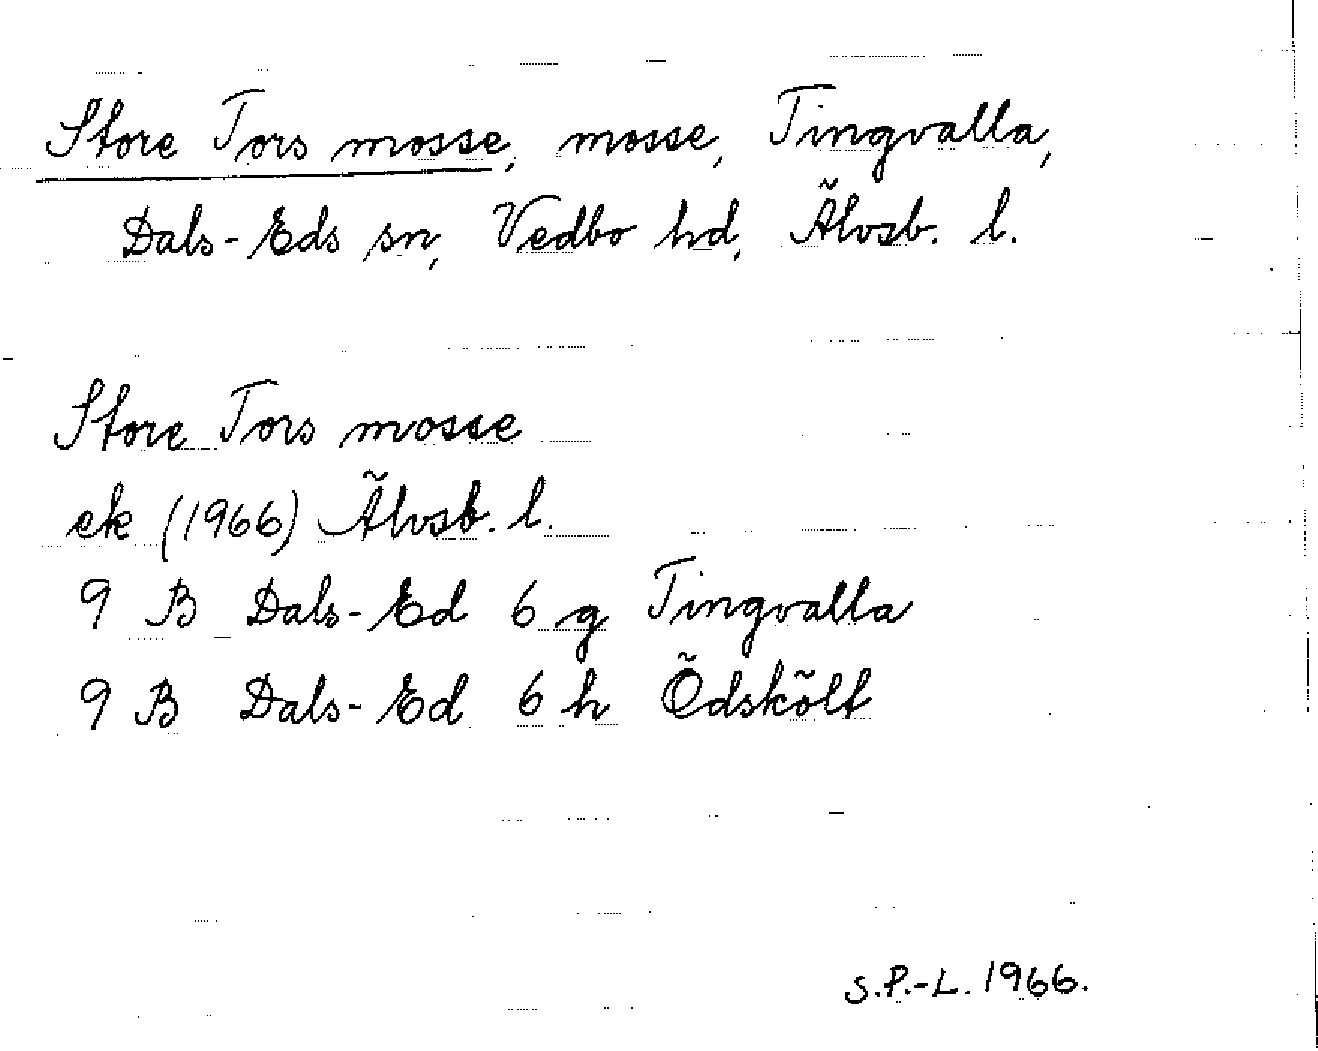 Store Tors mosse, mosse, Tingvalla,
Dals-Eds sn, Vedbo hd, Älvsb. l.
Store Tors mosse
ek (1966) Älvsb. l.
9 B Dals-Ed 6 g Tingvalla
9 B Dals-Ed 6 h Ödskölt
S.P.-L. 1966.